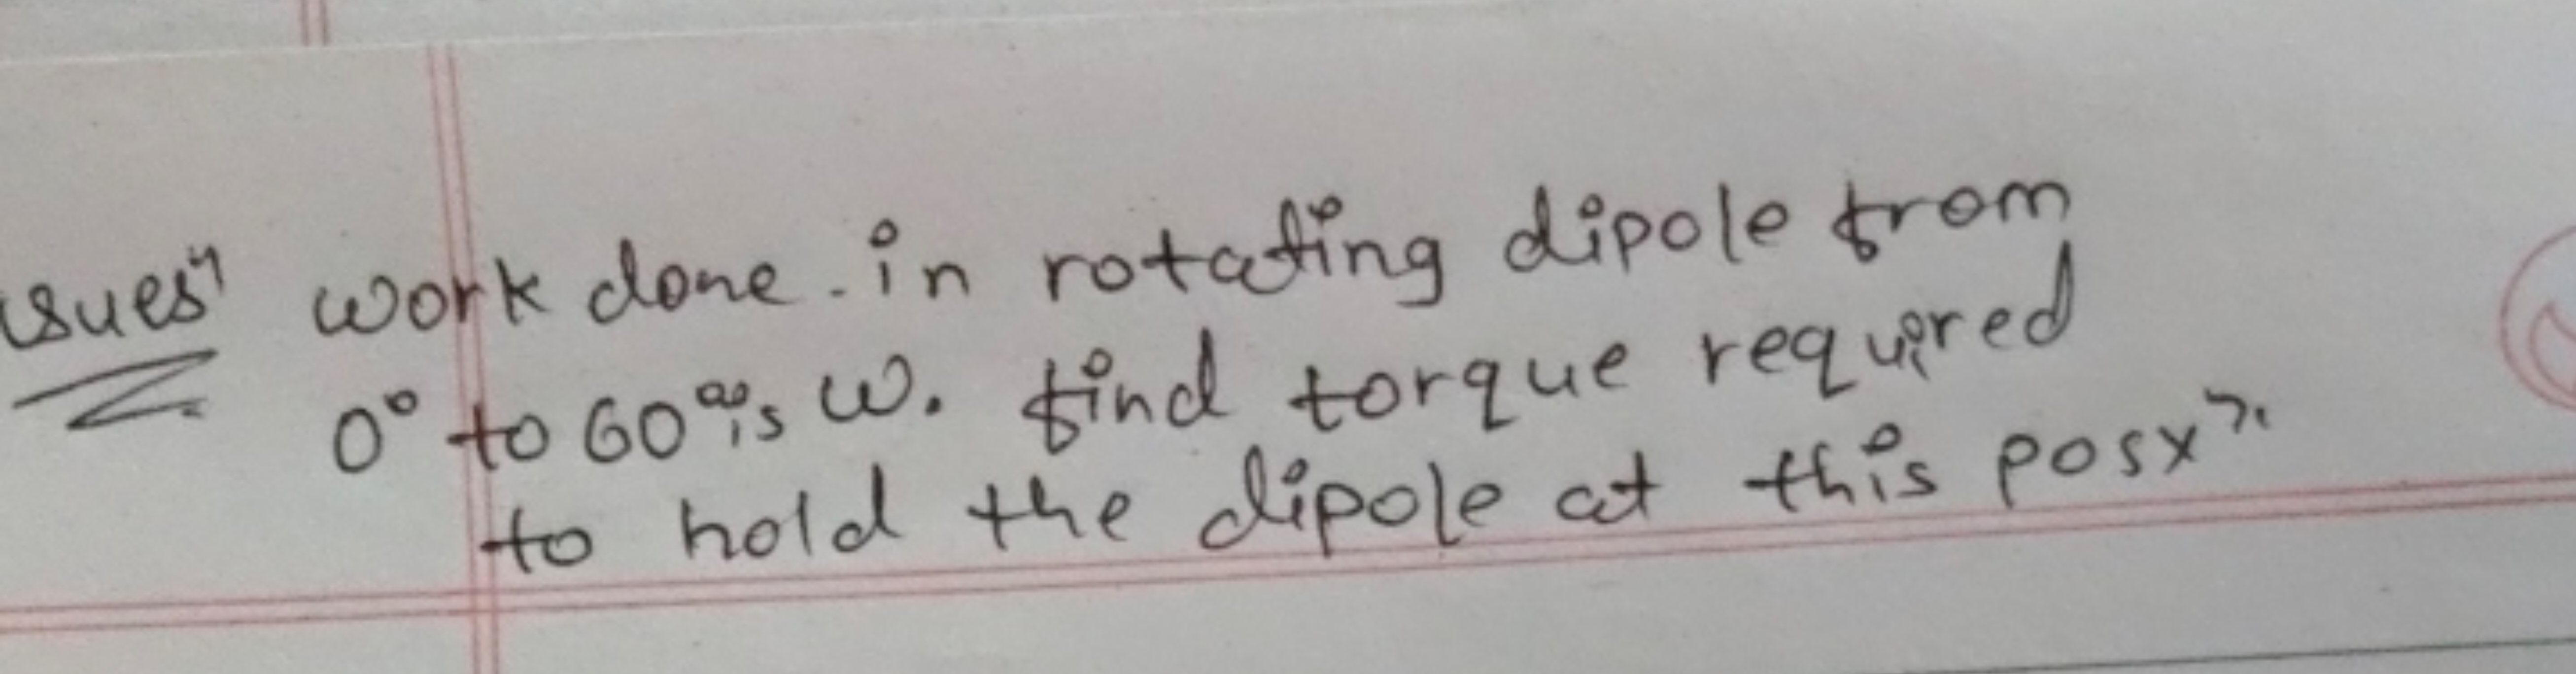 work done in rotating dipole from
0° to 60° is W. find torque required
to hold the dipole at this posxⁿ